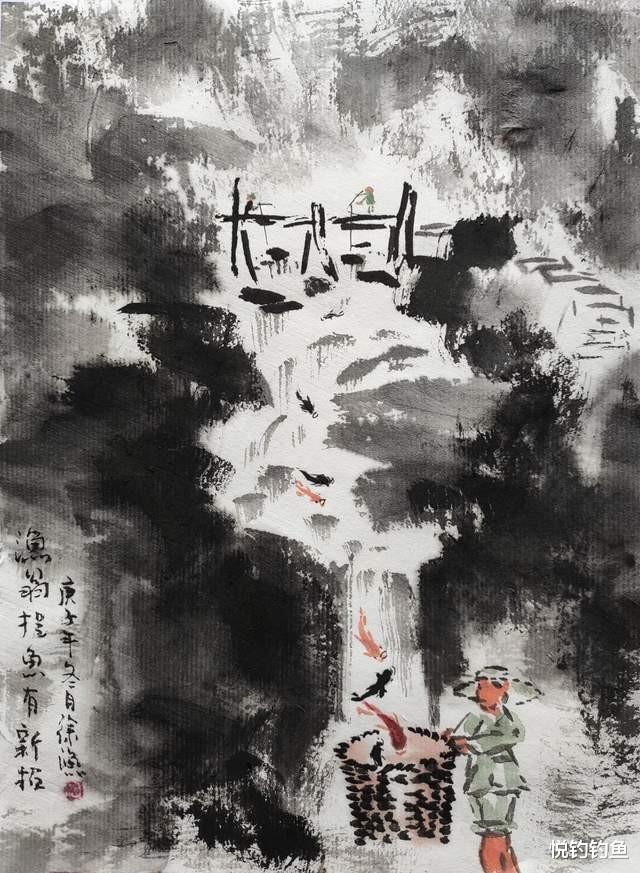 漁翁捉魚有新招
庚子年冬月徐
悦钓钓鱼